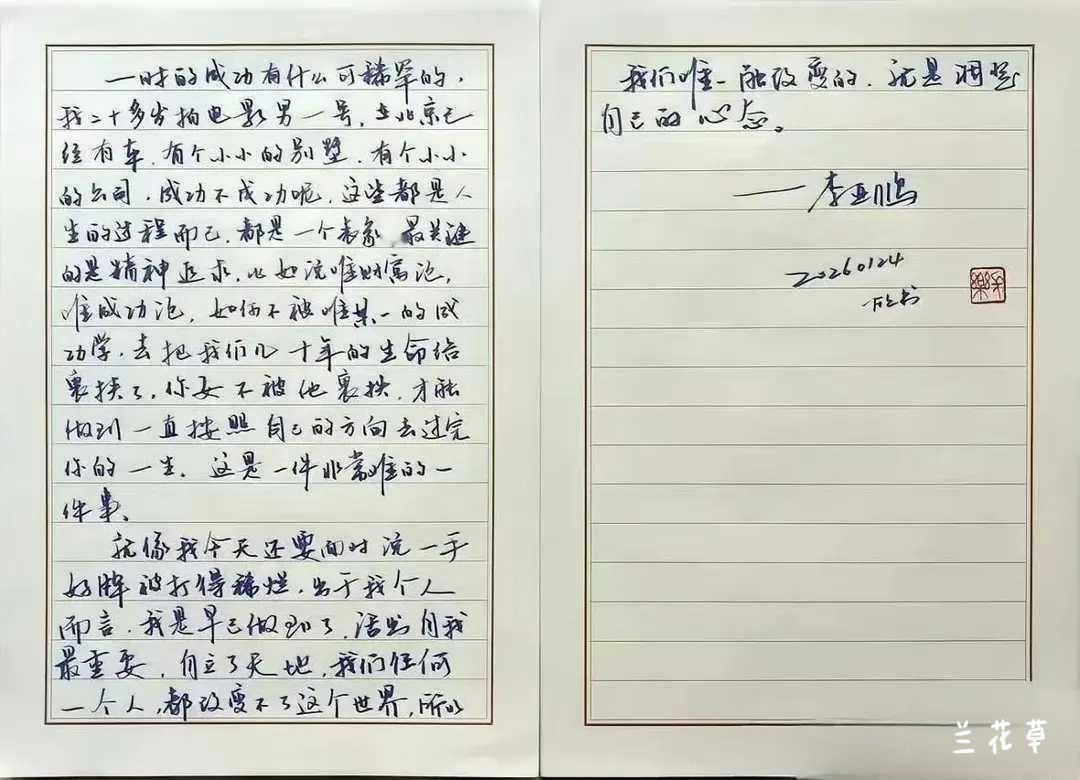 一时的成功有什么可稀罕的，
我二十多岁拍电影男一号，在北京已
经有车，有个小小的别墅，有个小小
的公司，成功不成功呢，这些都是人
生的过程而已，都是一个表象，最关键
的是精神追求，比如说唯财富论，
唯成功论，如何不被唯某一的成
功学，去把我们几十年的生命给
裹挟了，你要不被他裹挟，才能
做到一直按照自己的方向去过完
你的一生，这是一件非常难的一
件事。
就像我今天还要面对说一手
好牌被打得稀烂，当于我个人
而言，我是早已做到了，活出自我
最重要，自立了天地，我们任何
一个人，都改变不了这个世界，所以
我们唯一能改变的，就是调整
自己的心态。
——李亚鹏
20260124
兰花草